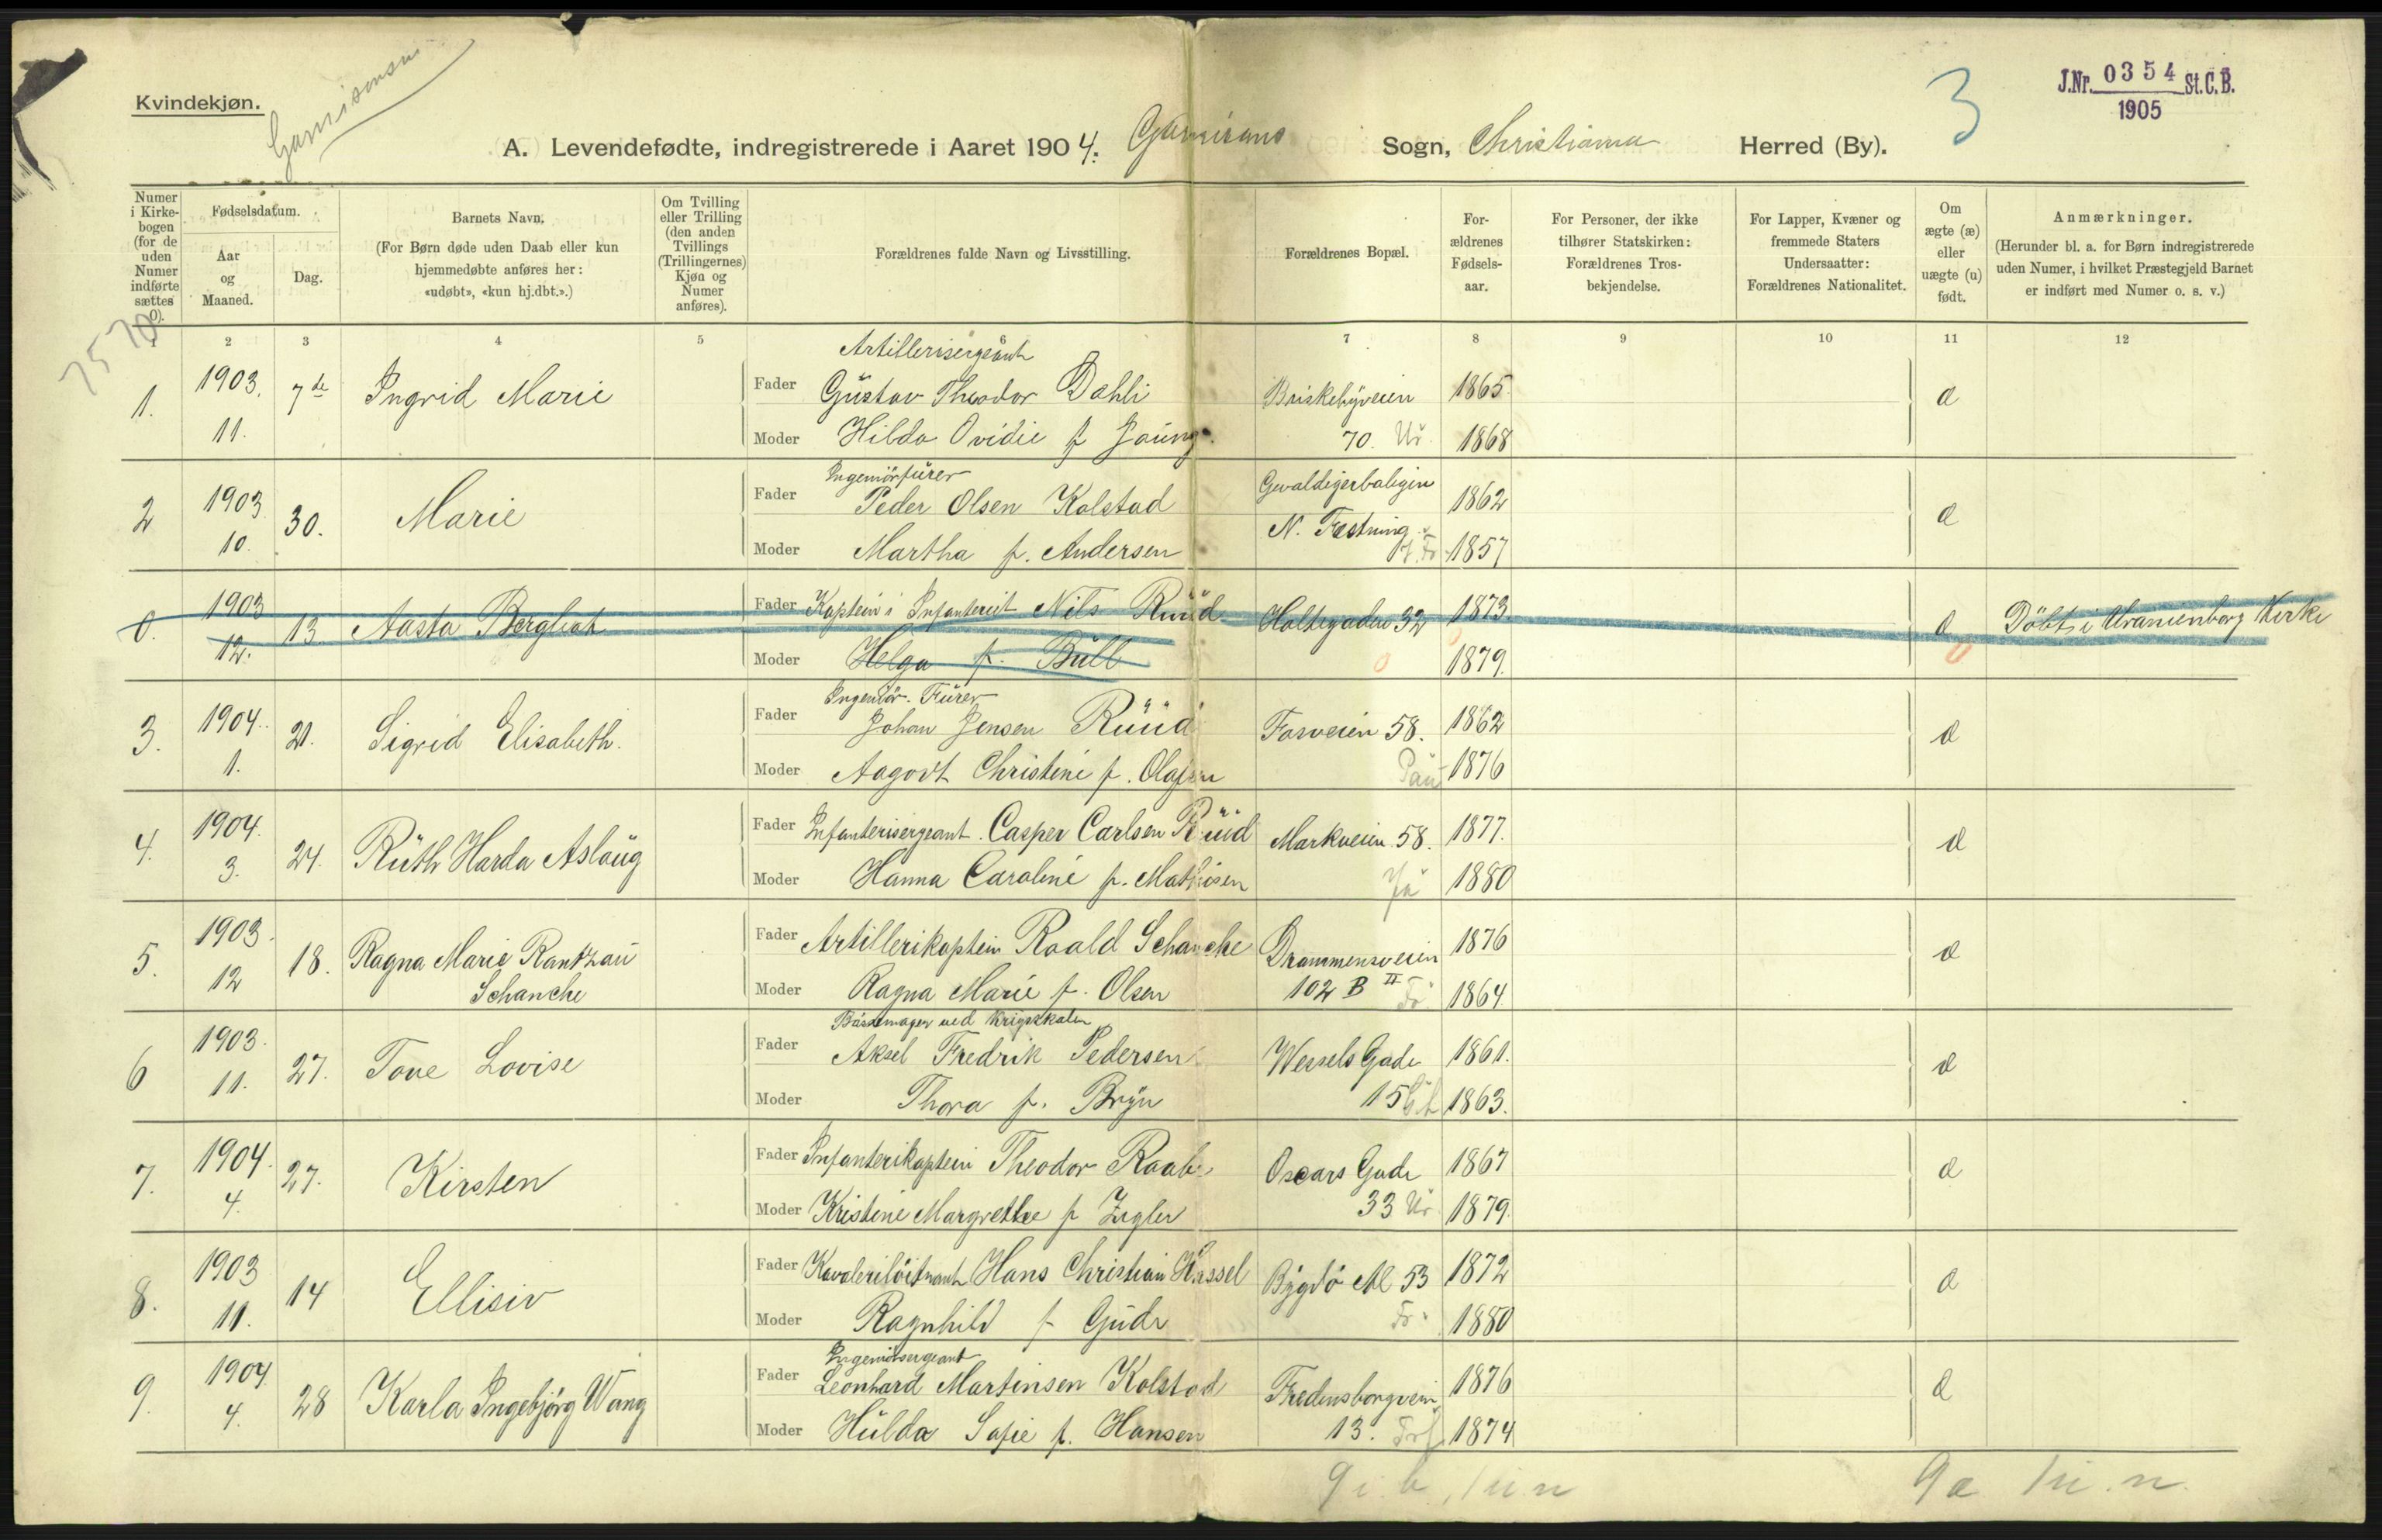 Kvindekjøn.
Garnisons
J.Nr. 0354 St.C.B.
1905
3
A. Levendefødte, indregistrerede i Aaret 1904. Garnisons Sogn, Christiania Herred (By).
Numer i Kirke-bogen (for de uden Numer indførte sættes 0).
Fødselsdatum.
Aar og Maaned.
Dag.
Barnets Navn.
(For Børn døde uden Daab eller kun hjemmedøbte anføres her: «udøbt», «kun hj.dbt.».)
Om Tvilling eller Trilling (den anden Tvillings (Trillingernes) Kjøn og Numer anføres).
Forældrenes fulde Navn og Livsstilling.
Forældrenes Bopæl.
For-ældrenes Fødsels-aar.
For Personer, der ikke tilhører Statskirken: Forældrenes Tros-bekjendelse.
For Lapper, Kvæner og fremmede Staters Undersaatter: Forældrenes Nationalitet.
Om ægte (æ) eller uægte (u) født.
Anmærkninger.
(Herunder bl. a. for Børn indregistrerede uden Numer, i hvilket Præstegjeld Barnet er indført med Numer o. s. v.)
7570
1 2 3 4 5 7 8 9 10 11 12
Artillerisergeant
1. 1903. 11. 7de Ingrid Marie Fader Gustav Theodor Dahli Briskebyveien 1865 æ
Moder Hilda Ovidie f Jaung 70. Ur 1868
Ingeniörfurer
2 1903 10. 30. Marie Fader Peder Olsen Kolstad Gevaldigerboligen 1862 æ
N. Fæstning
Moder Martha f. Andersen 1857
0. 1903 12. 13. Aasta Bergliot Fader Kaptein i Infanteriet Nils Ruud Holtegaden 32 1873. æ Döbt i Uranienborg Kirke
Moder Helga f. Bull 0 1879. 0
Ingeniör-Furer
3. 1904. 1. 21. Sigrid Elisabeth. Fader Johan Jensen Ruud Fosveien 58. 1862 æ
Moder Aagodt Christine f. Olafsen Pau 1876
4. 1904. 3. 24. Ruth Harda Aslaug Fader Infanterisergeant. Casper Carlsen Ruud Markveien 58. 1877. æ
Moder Hanna Caroline f. Mathisen Ja 1880
5. 1903. 12 18. Ragna Marie Rantzau Fader Artillerikaptein Roald Schanche Drammensveien 1876 æ
Schanche Moder Ragna Marie f. Olsen 102 B II Fr 1864
Bössemager ved Krigsskolen
6 1903. 11. 27. Tove Lovise Fader Aksel Fredrik Pedersen Wessels Gade 1861. æ
Moder Thora f. Bryn 15 1863.
7. 1904. 4. 27. Kirsten Fader Infanterikaptein Theodor Raabe Oscars Gade 1867 æ
Moder Kristine Margrethe f Zigler 33 Ur 1879.
8. 1903 11. 14 Ellisiv Fader Kavaleriløitnant Hans Christian Hassel Bygdö Al 53 1872 æ
Moder Ragnhild f Gude Fr. 1880
Ingeniörsergeant
9. 1904 4. 28 Karla Ingebjörg Wang Fader Leonhard Martinsen Kolstad Fredensborgvein 1876 æ
Moder Hulda Sofie f. Hansen 13. 1874
9 i. b. 1 u. n 9 æ 1 u. n.